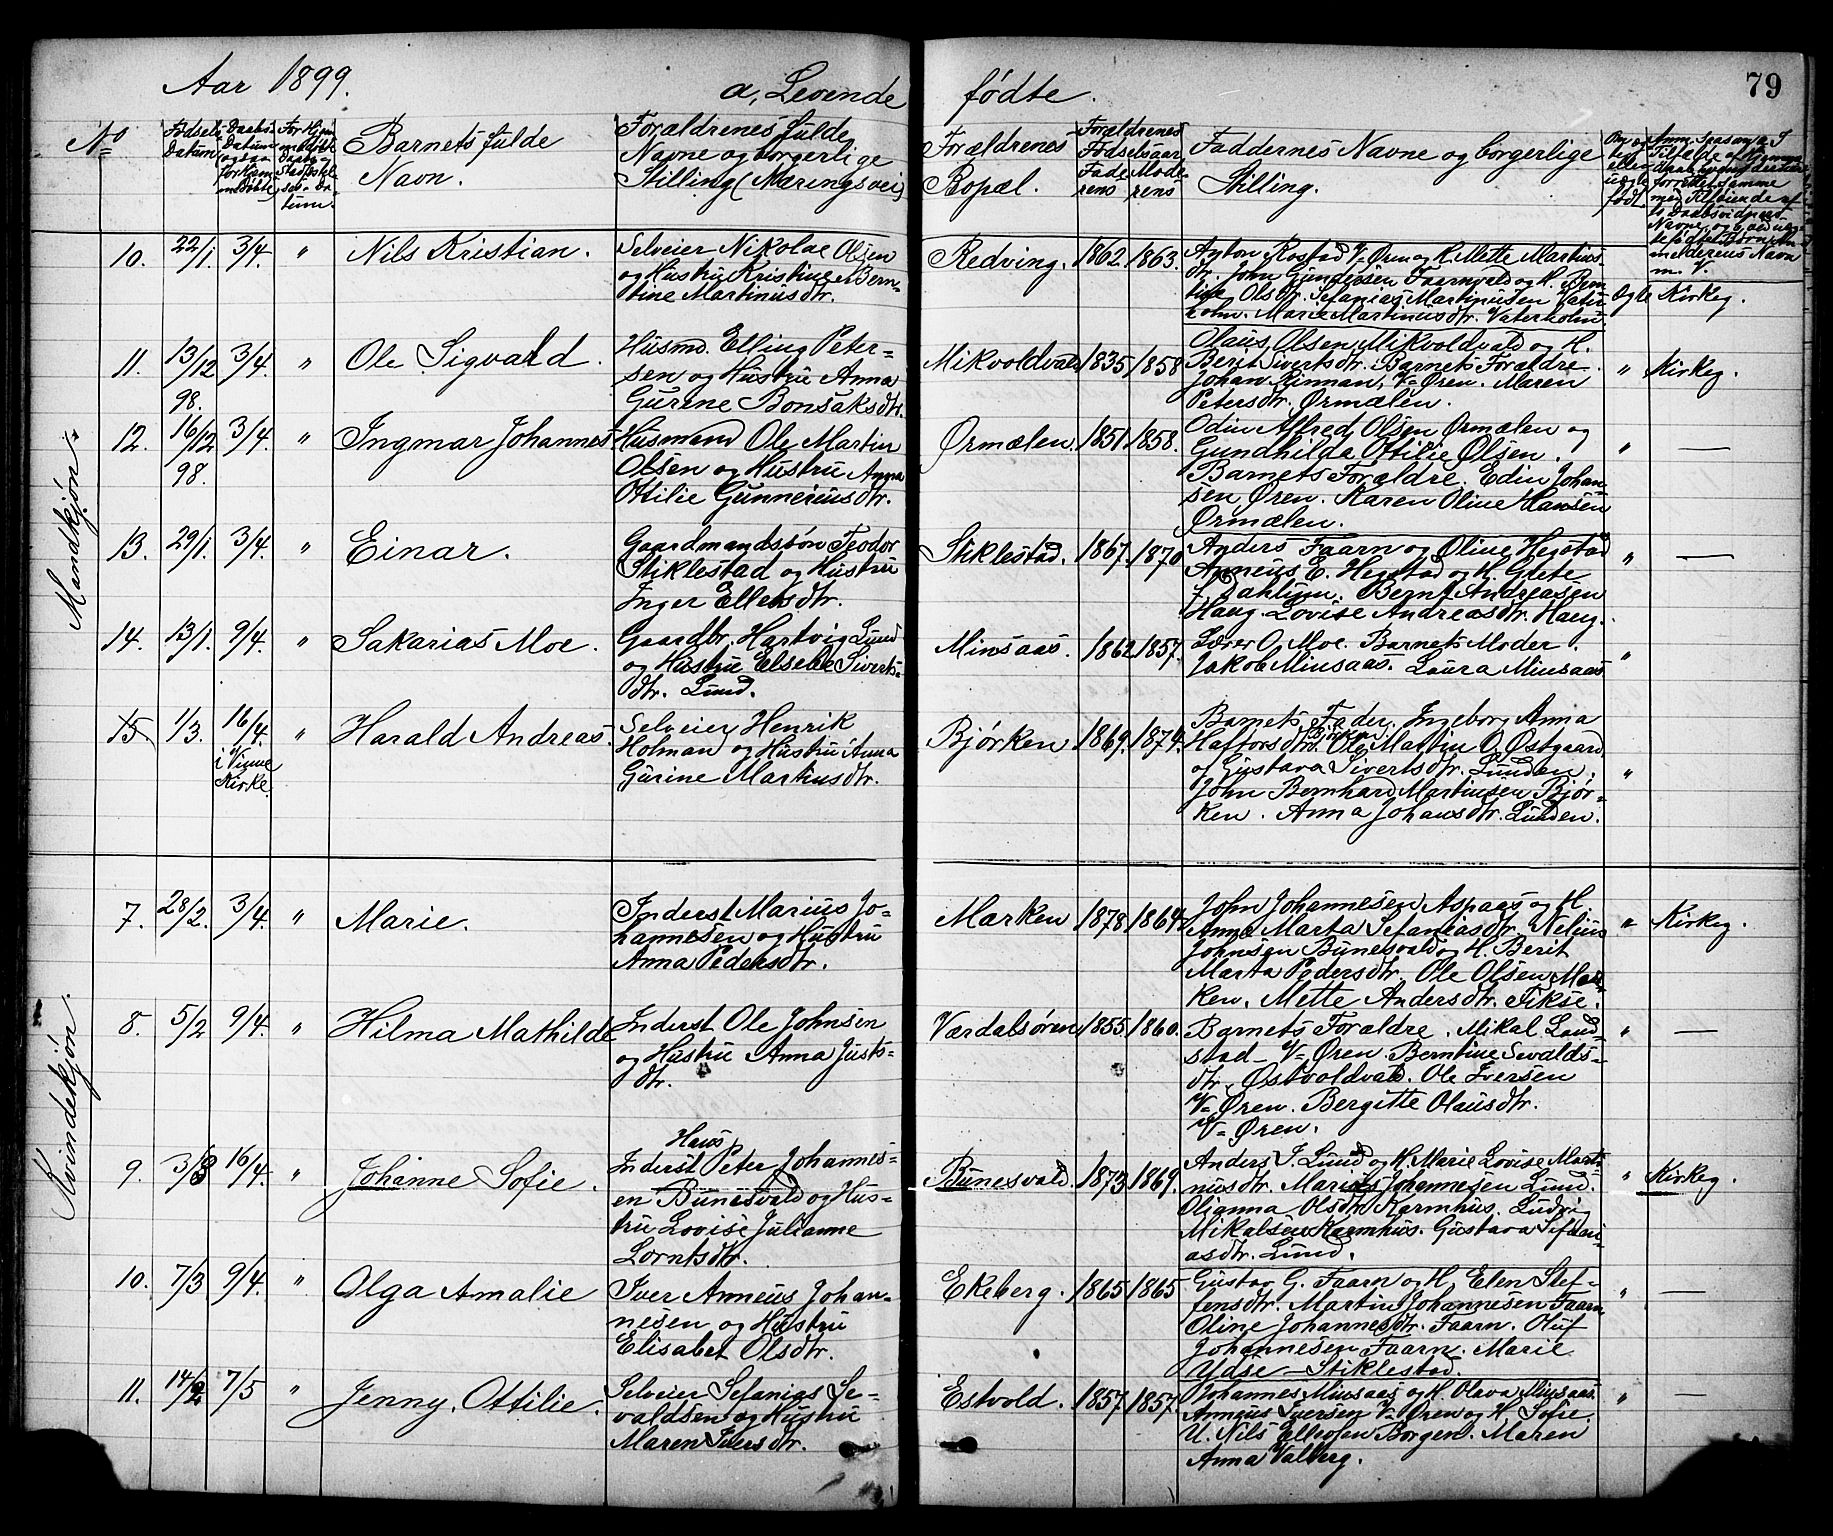 Aar 1899.
a, Levende
fødte.
79
No
Fødsels-
Datum
Daabs-
Datum
Barnets fulde
Navn.
Forældrenes fulde
Navne og borgerlige
Stilling (Næringsvei)
Forældrenes
Bopæl.
Forældrenes
Fødselsaar
Fade- Mode-
rens rens
Faddernes Navne og borgerlige
Stilling.
Mandkjøn.
10. 22/1. 3/4. " Nils Kristian.
Selveier Nikolai Olsen
og Hustru Kristine Bern-
tine Martinusdtr.
Redving. 1862. 1863.
Anton Rostad V-Øren og H. Mette Martinus-
dtr. John Gundersen Faarnvald og H. Bern-
tine Olsdtr. Sefanias Martinusen Vater-
holm. Marie Martinusdtr. Vaterholm.
Ægte Kirkeg.
11. 13/12 98. 3/4. " Ole Sigvald.
Husmd. Elling Peter-
sen og Hustru Anna
Gurine Bonsaksdtr.
Mikvoldvald 1835. 1858
Olaus Olsen Mikvoldvald og H.
Berit Sivertsdtr. Barnets Forældre.
Johan Rinnan, V-Øren. Maren
Petersdtr. Ørmælen.
" Kirkeg.
12. 16/12 98. 3/4. " Ingmar Johannes
Husmand Ole Martin
Olsen og Hustru Anna
Ottilie Gunneriusdtr.
Ørmælen. 1851. 1858.
Odin Alfred Olsen Ørmælen og
Gundhilda Ottilie Olsen.
Barnets Forældre. Edin Johan-
sen Øren. Karen Oline Hansen
Ørmælen.
" —
13. 29/1. 3/4. " Einar.
Gaardmandssøn Teodor
Stiklestad og Hustru
Inger Ellersdtr.
Stiklestad. 1867. 1870.
Anders Faarn og Oline Hegstad
Anneus E. Hegstad og H. Grete
f. Dahlum. Bernt Andreasen
Haug. Lovise Andreasdtr. Haug.
" —
14. 13/1. 9/4. " Sakarias Moe.
Gaardbr. Hartvig Lund
og Hustru Elsebe Siverts-
dtr. Lund.
Minsaas. 1862. 1857.
Lærer O. Moe. Barnets Moder.
Jakob Minsaas. Laura Minsaas
"
15. 1/3. 16/4. i Vinne Kirke. " Harald Andreas.
Selveier Henrik
Holman og Hustru Anna
Gurine Martinusdtr.
Bjørken 1869. 1874.
Barnets Fader. Ingeborg Anna
Haftorsdtr. Bjørken. Ole Martin O. Østgaard
og Gustava Sivertsdtr. Lunden.
John Bernhard Martinsen Bjør-
ken. Anna Johansdtr. Lunden.
"
Kvindekjøn.
7. 28/2. 3/4. " Marie.
Inderst Marius Jo-
hannesen og Hustru
Anna Pedersdtr.
Marken 1878 1864.
John Johannesen Aspaas og H.
Anne Marta Sefaniasdtr. Nelius
Johnsen Bunesvald og H. Berit
Marta Pedersdtr. Ole Olsen Mar-
ken. Mette Andersdtr. Fikse.
" Kirkeg.
8. 5/2 9/4. " Hilma Mathilde
Inderst Ole Johnsen
og Hustru Anna Justs-
dtr.
Værdalsøren 1855. 1860.
Barnets Forældre. Mikal Land-
stad V-Øren. Berntine Sevalds-
dtr. Østvoldvald. Ole Iversen
V-Øren. Bergitte Olausdtr.
V-Øren.
" —
9. 3/3 16/4. " Johanne Sofie.
Hans
Inderst Peter Johannes-
en Bunesvald og Hus-
tru Lovise Julianne
Lorntsdtr.
Bunesvald. 1873 1869.
Anders J. Lund og H. Marie Lovise Marti-
nusdtr. Marius Johannesen Lund.
Olianna Olsdtr. Karmhus. Ludvig
Mikalsen Karmhus. Gustava Sefani-
asdtr. Lund.
" Kirkeg.
10. 7/3 9/4. " Olga Amalie
Iver Anneus Johan-
nesen og Hustru
Elisabet Olsdtr.
Ekeberg. 1865 1865
Gustav G. Faarn og H. Elen Stef-
fensdtr. Martin Johannesen Faarn
Oline Johannesdtr. Faarn. Oluf
Johannesen Faarn. Marie
Ydse Stiklestad.
" —
11. 14/2 7/5 " Jenny Ottilie.
Selveier Sefanias Se-
valdsen og Hustru
Maren Iversdtr.
Estvold. 1857. 1857.
Johannes Minsaas og H. Olava Minsaas.
Anneus Iversen V-Øren og H. Sofie.
U. Nils Ellevsen Borgen. Maren
Anna Valberg.
" —